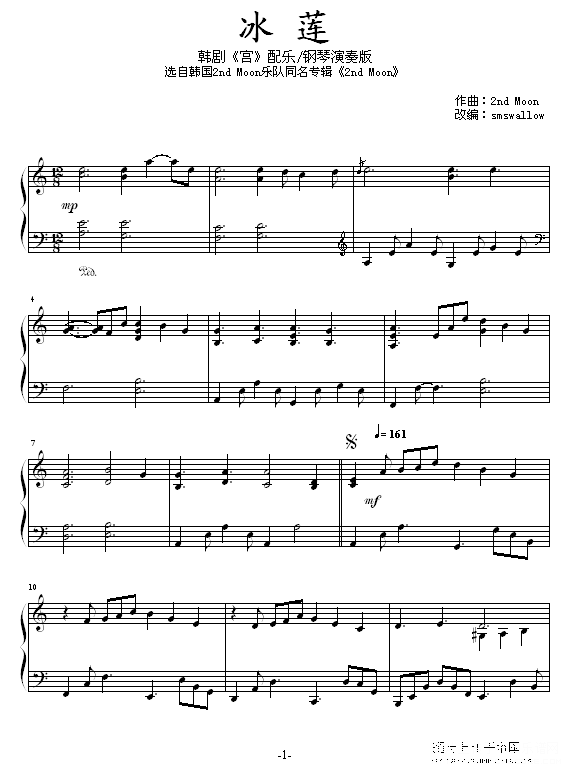 冰 莲
韩剧《宫》配乐/钢琴演奏版
选自韩国2nd Moon乐队同名专辑《2nd Moon》
作曲：2nd Moon
改编：smswallow
mp
Ped.
4
7
= 161
mf
10
-1-